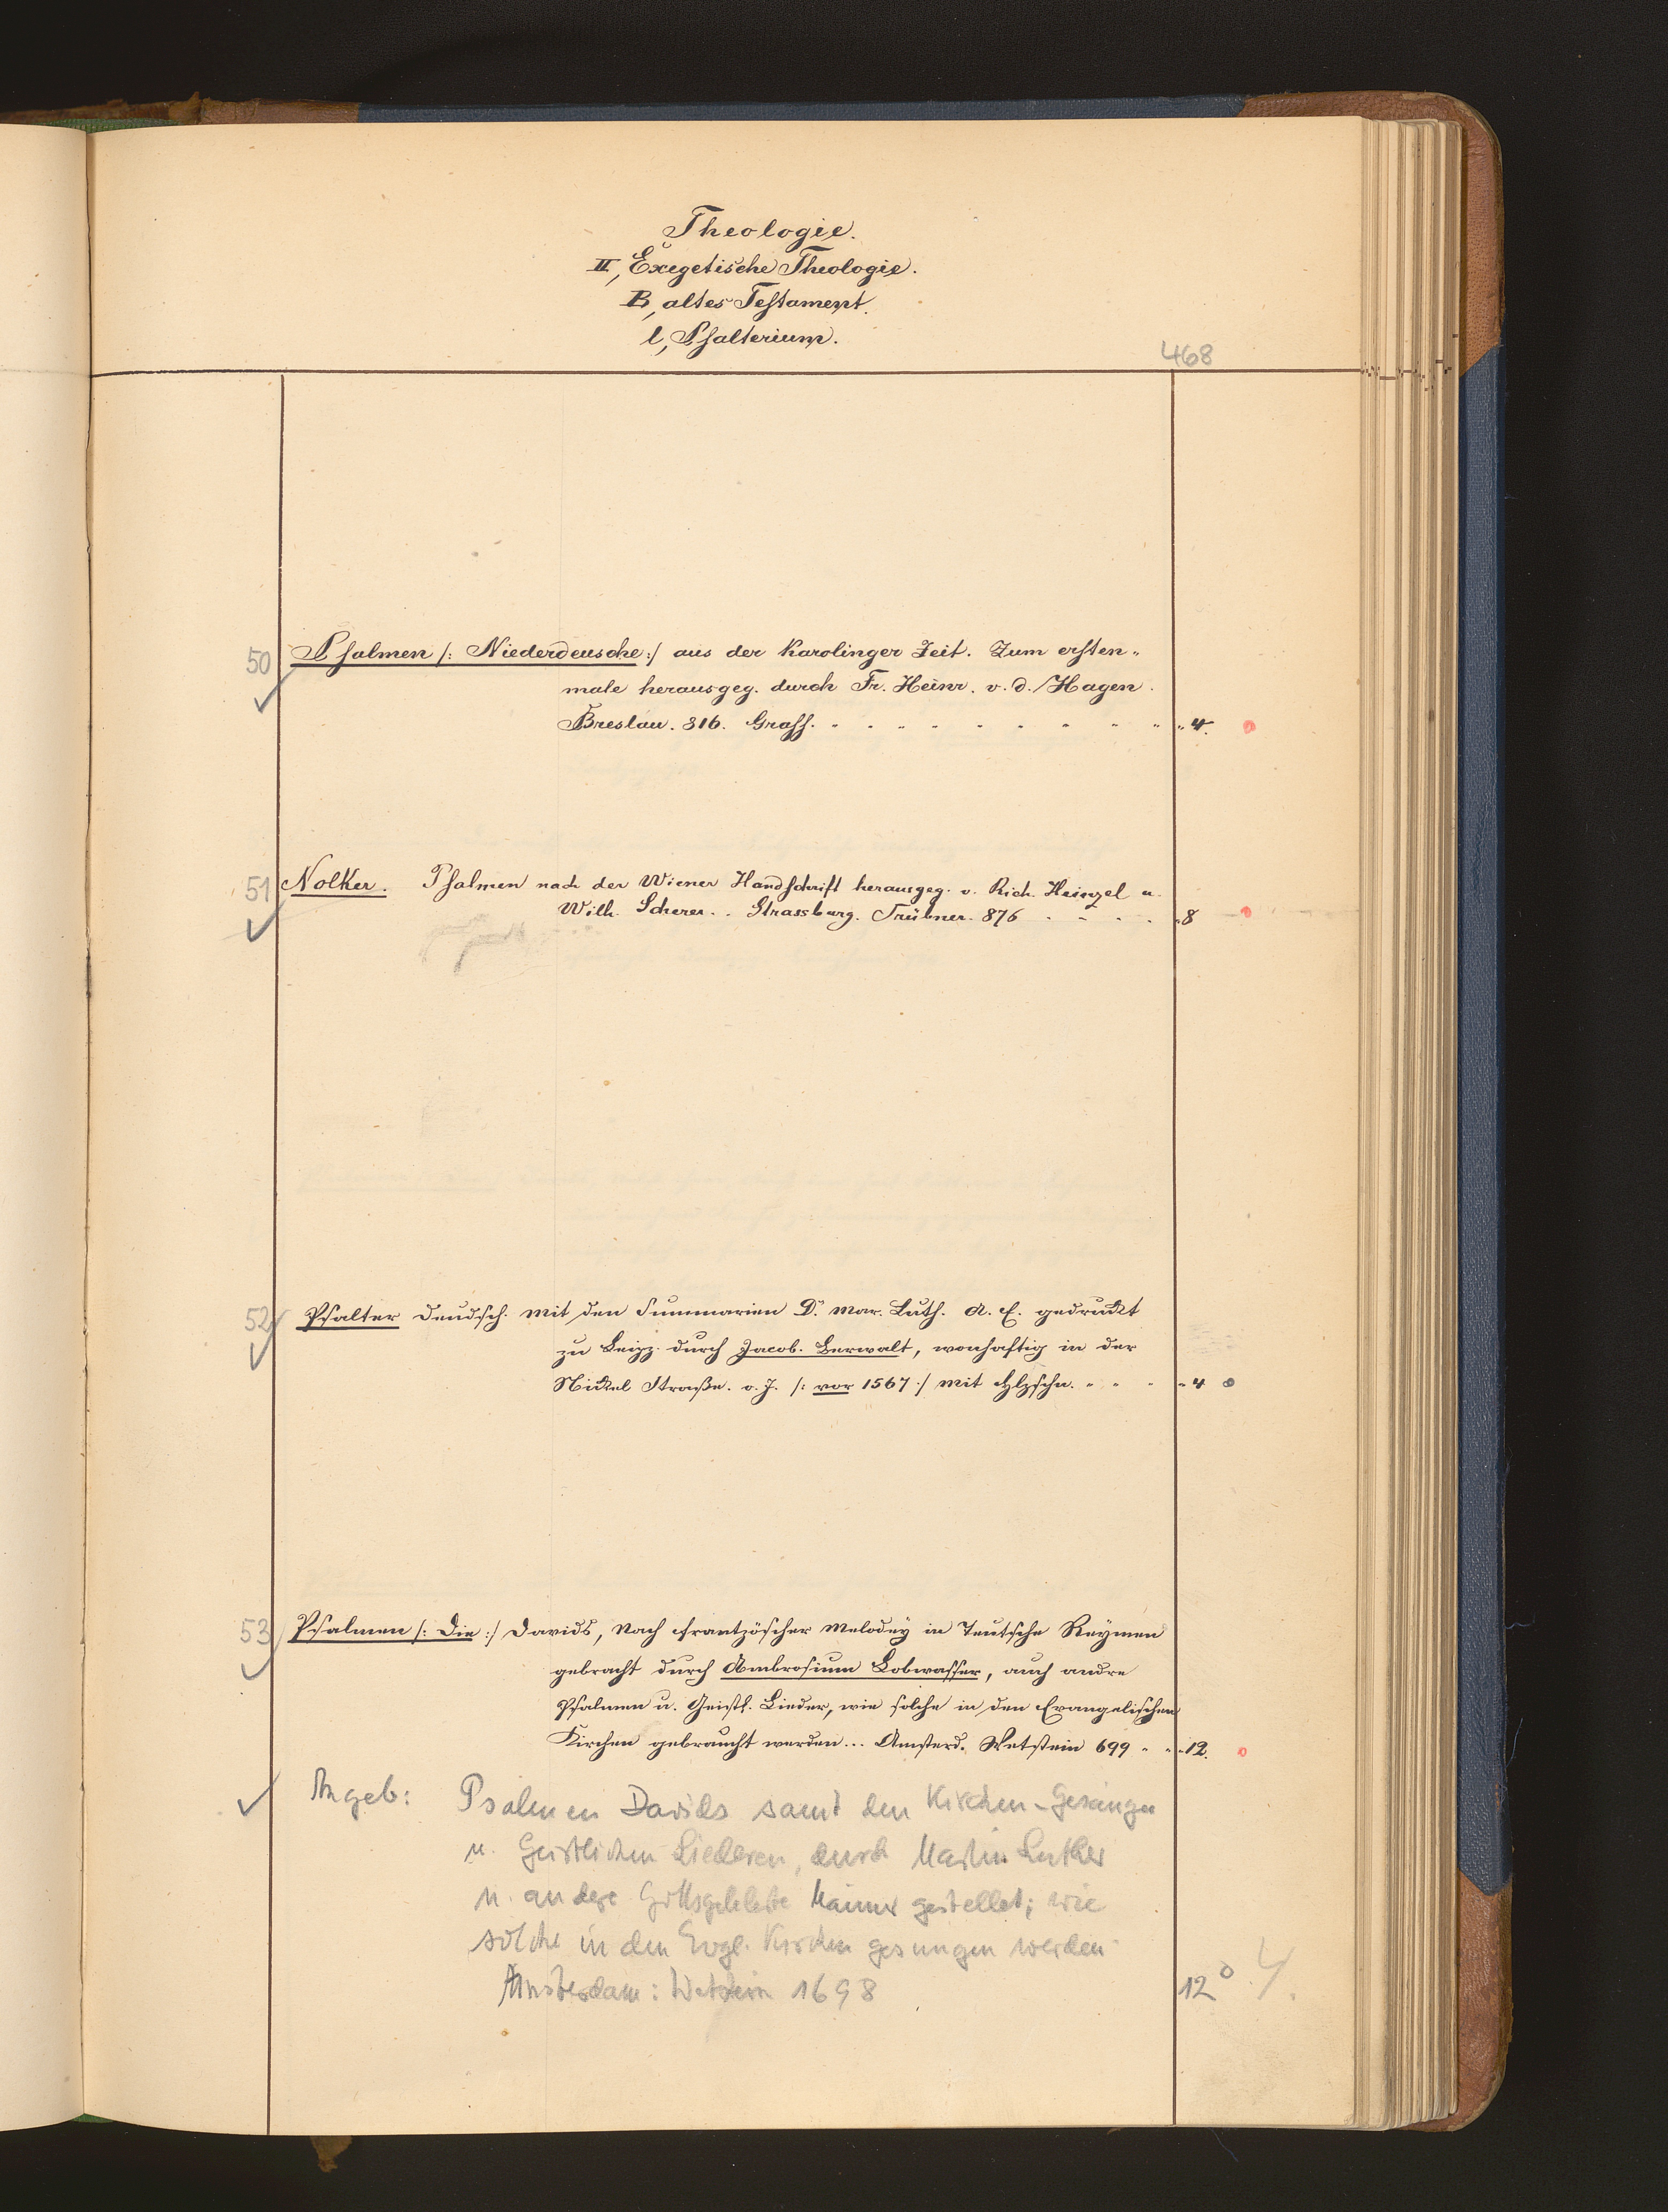 Theologie.
II, Exegetische Theologie.
B, altes Testament.
l, Psalterium.
468
50 Psalmen /: Niederdeusche :/ aus der Karolinger Zeit. Zum ersten-
male herausgeg. durch Fr. Heinr. v. d. Hagen.
Breslau. 816. Graff. " 4.
51 Notker. Psalmen nach der Wiener Handschrift herausgeg. v. Rich. Heinzel u.
Wilh. Scherer. . Strassburg. Trübner. 876 " 8
52 Psalter Deudsch. mit den Summarien D. Mar. Luth. A. E. gedruckt
zu Leipz. durch Jacob. Berwalt, wonhaftig in der
Nickel Straße. o. J. /: vor 1567 :/ mit Hlzschn. " 4
53 Psalmen /: Die :/ Davids, Nach Frantzöscher Melodey in Teutsche Reymen
gebracht durch Ambrosium Lobwasser, auch andre
Psalmen u. Geistl. Lieder, wie solche in den Evangelischen
Kirchen gebraucht werden... Amsterd. Wetstein 699 " 12.
Angeb: Psalmen Davids samt den Kirchen-Gesängen
u. Geistlichen Liederen, durch Martin Luther
u. andere Gottsgelehrte Männer gestellet; wie
solche in den Evgl. Kirchen gesungen werden
Amsterdam: Wetstein 1698 12°